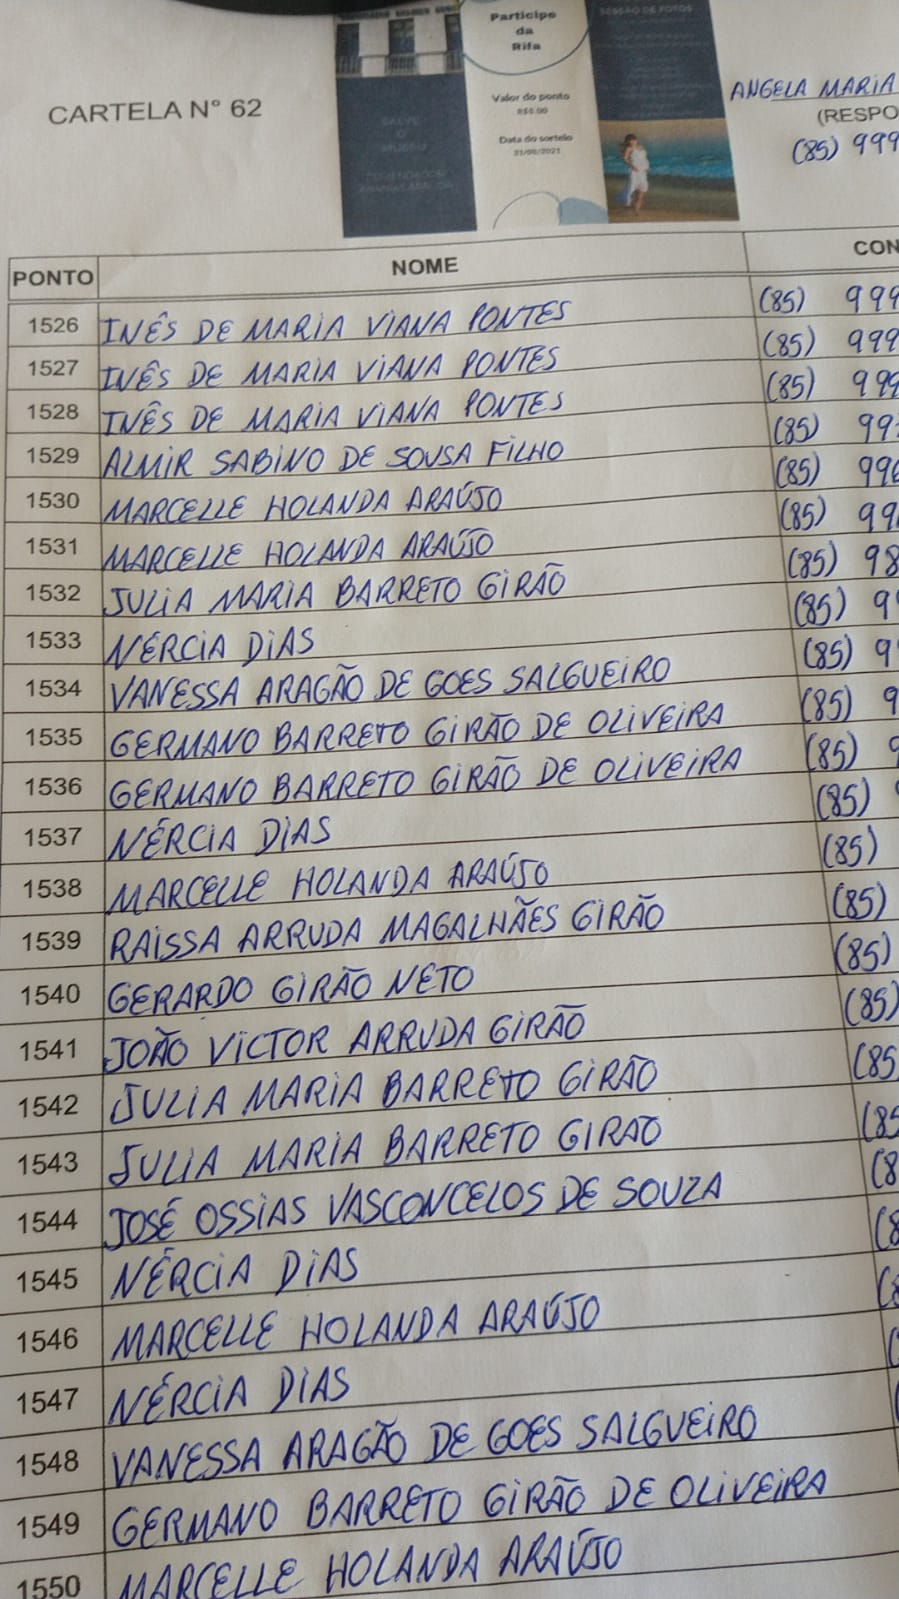 Participe
da
Rifa
SESSÃO DE FOTOS
Valor do ponto
R$5,00
Data do sorteio
21/08/2021
SALVE
O
MUSEU
CARTELA N° 62
ANGELA MARIA
(RESPO
(85) 999
PONTO NOME CON
1526 INÊS DE MARIA VIANA PONTES (85) 999
1527 INÊS DE MARIA VIANA PONTES (85) 999
1528 INÊS DE MARIA VIANA PONTES (85) 999
1529 ALMIR SABINO DE SOUSA FILHO (85) 99
1530 MARCELLE HOLANDA ARAÚJO (85) 996
1531 MARCELLE HOLANDA ARAÚJO (85) 99
1532 JULIA MARIA BARRETO GIRÃO (85) 98
1533 NÉRCIA DIAS (85) 9
1534 VANESSA ARAGÃO DE GOES SALGUEIRO (85) 9
1535 GERMANO BARRETO GIRÃO DE OLIVEIRA (85) 9
1536 GERMANO BARRETO GIRÃO DE OLIVEIRA (85) 9
1537 NÉRCIA DIAS (85)
1538 MARCELLE HOLANDA ARAÚJO (85)
1539 RAISSA ARRUDA MAGALHÃES GIRÃO (85)
1540 GERARDO GIRÃO NETO (85)
1541 JOÃO VICTOR ARRUDA GIRÃO (85)
1542 JULIA MARIA BARRETO GIRÃO (85
1543 JULIA MARIA BARRETO GIRÃO (85
1544 JOSÉ OSSIAS VASCONCELOS DE SOUZA (8
1545 NÉRCIA DIAS (8
1546 MARCELLE HOLANDA ARAÚJO (8
1547 NÉRCIA DIAS (
1548 VANESSA ARAGÃO DE GOES SALGUEIRO
1549 GERMANO BARRETO GIRÃO DE OLIVEIRA
1550 MARCELLE HOLANDA ARAÚJO